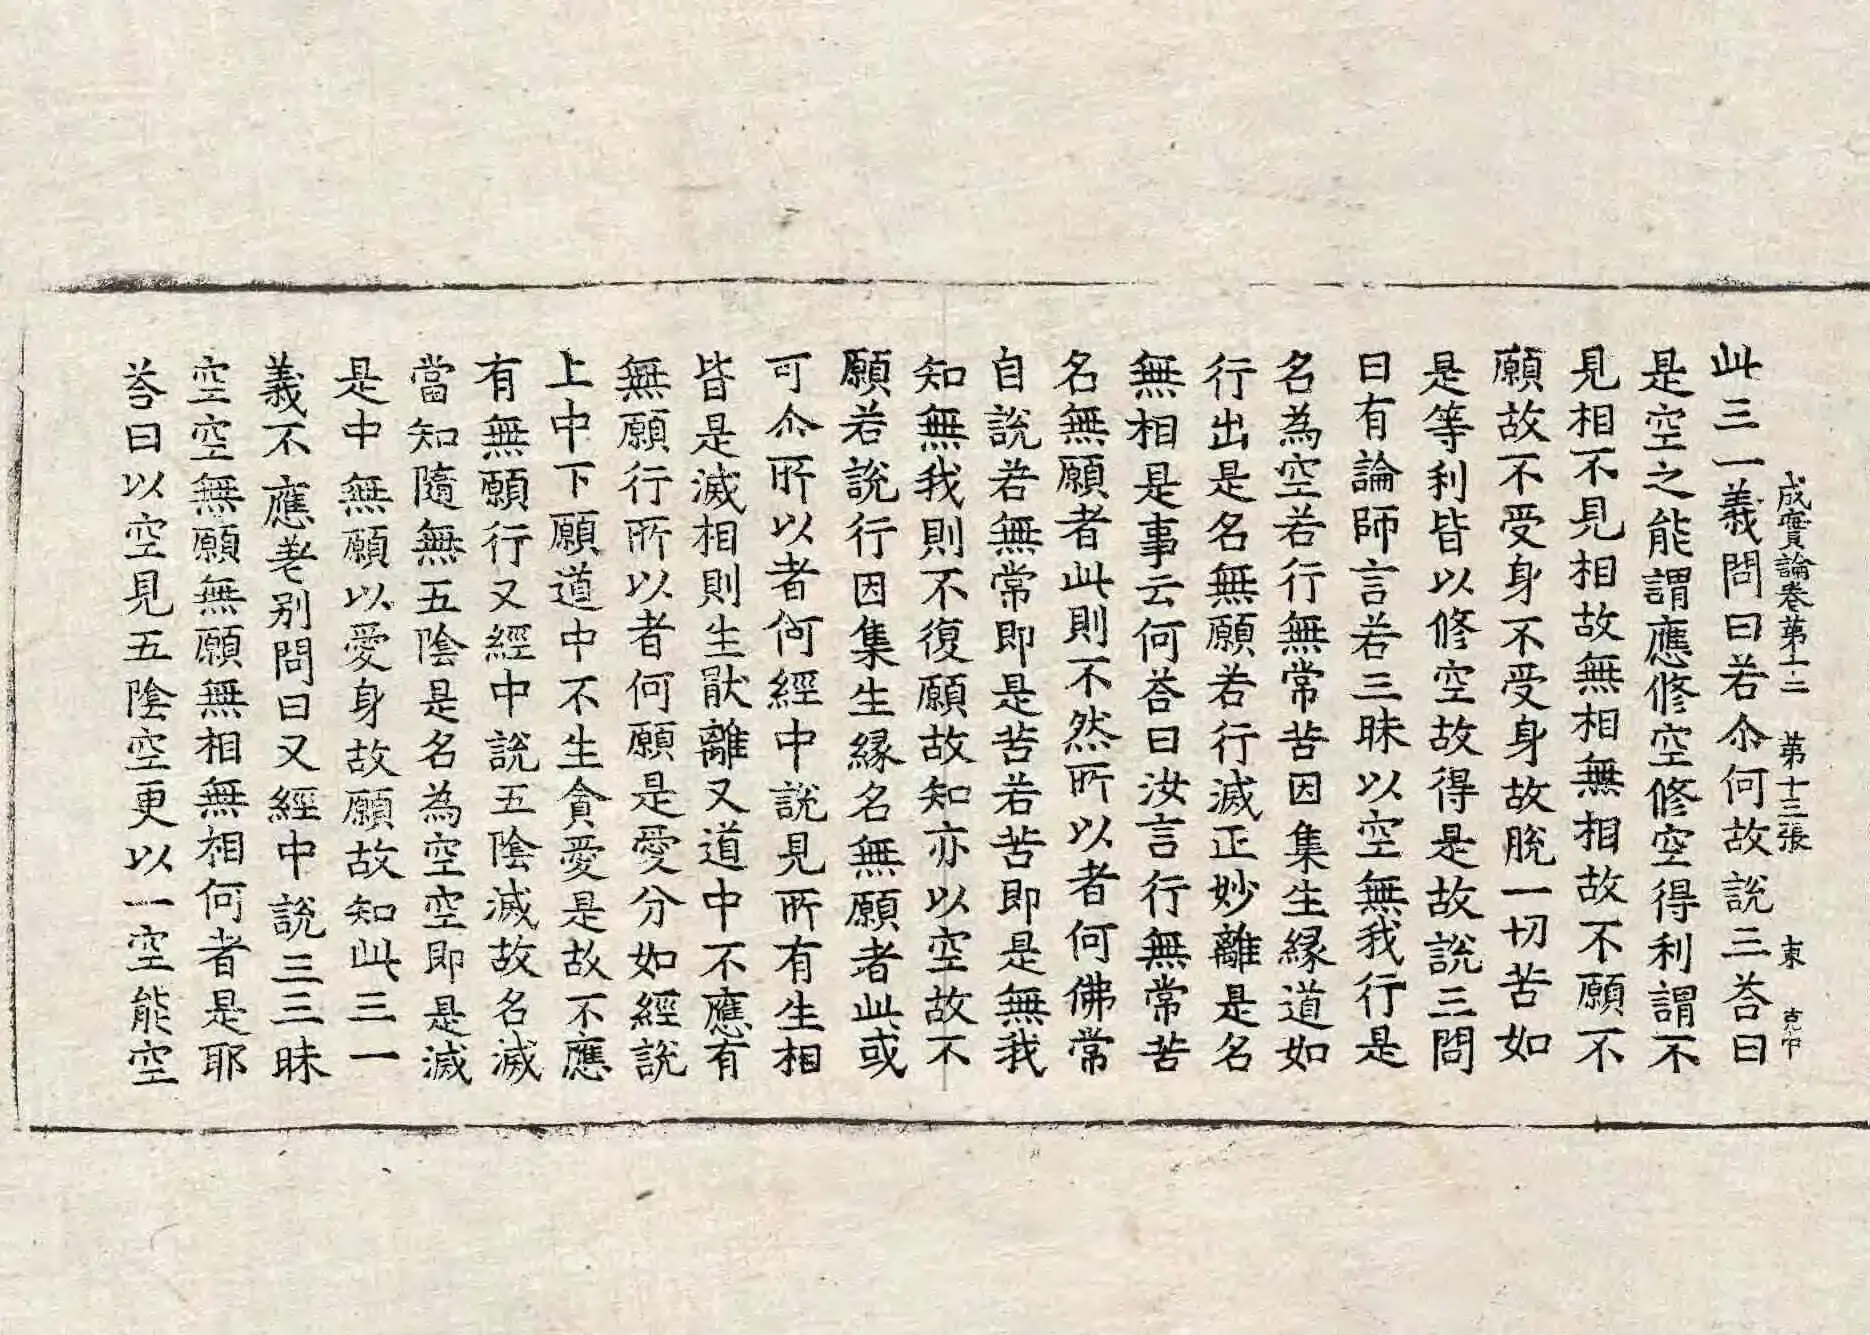 成實論卷第十二　第十三張　東
此三一義問曰若尒何故說三荅曰
是空之能謂應修空修空得利謂不
見相不見相故無相無相故不願不
願故不受身不受身故脫一切苦如
是等利皆以修空故得是故說三問
曰有論師言若三昧以空無我行是
名為空若行無常苦因集生緣道如
行出是名無願若行滅正妙離是名
無相是事云何荅曰汝言行無常苦
名無願者此則不然所以者何佛常
自說若無常即是苦若苦即是無我
知無我則不復願故知亦以空故不
願若說行因集生緣名無願者此或
可尒所以者何經中說見所有生相
皆是滅相則生猒離又道中不應有
無願行所以者何願是愛分如經說
上中下願道中不生貪愛是故不應
有無願行又經中說五陰滅故名滅
當知隨無五陰是名為空空即是滅
是中無願以愛身故願故知此三一
義不應差別問曰又經中說三三昧
空空無願無願無相無相何者是耶
荅曰以空見五陰空更以一空能空